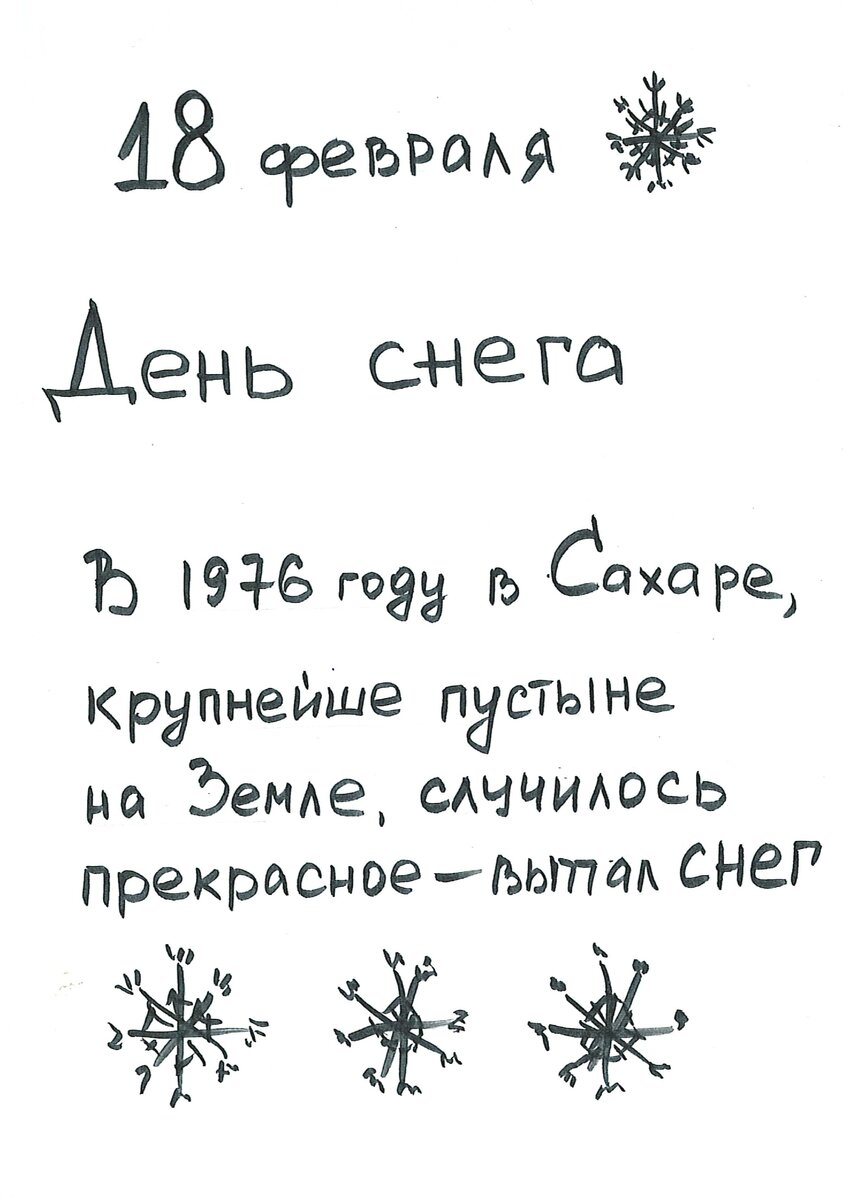 18 февраля
День снега
В 1976 году в Сахаре,
крупнейше пустыне
на Земле, случилось
прекрасное – выпал снег